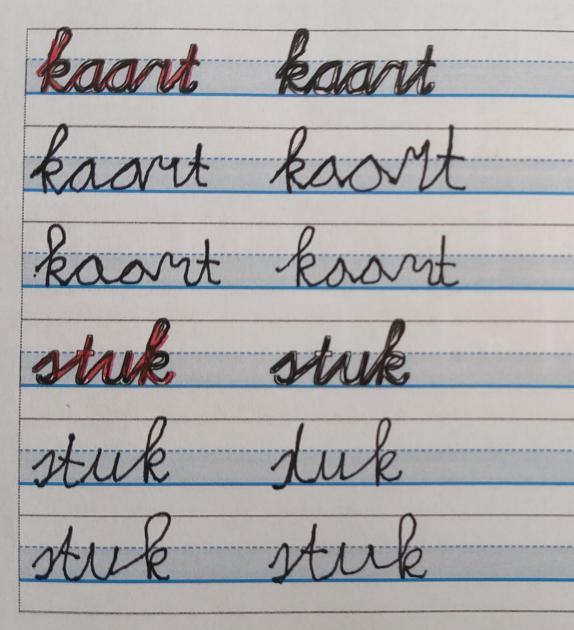 kaart kaart
kaart kaart
kaart kaart
stuk stuk
stuk stuk
stuk stuk